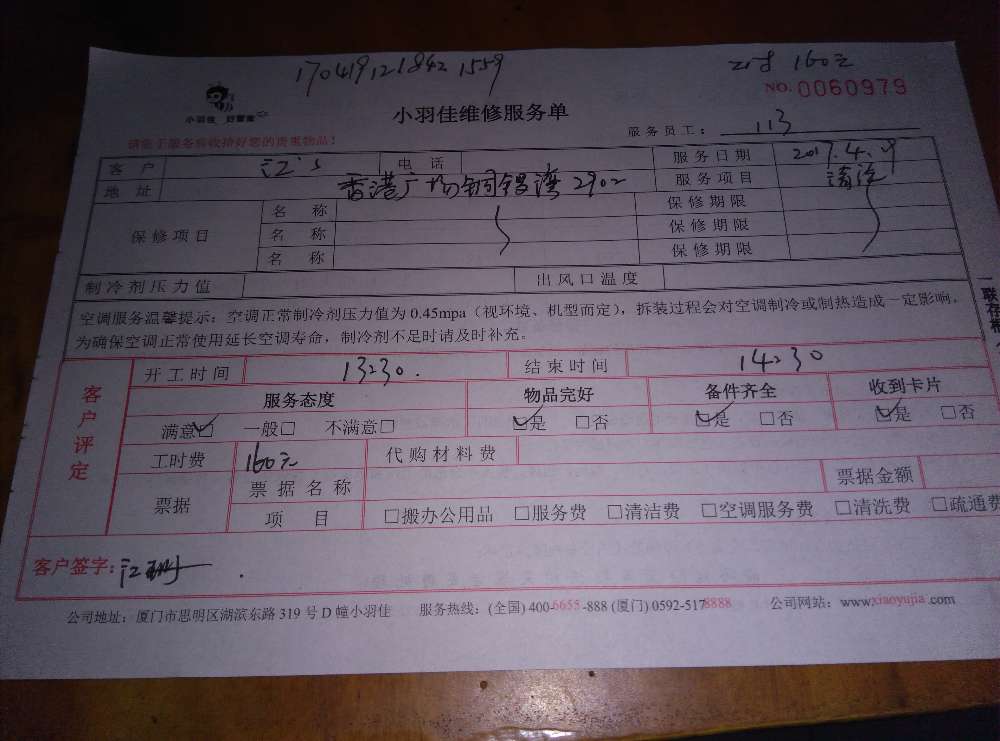 170419121842 1559
160元
NO. 0060979
小羽佳 好管家
小羽佳维修服务单
服务员工： 113
请您于服务前收拾好您的贵重物品！
客 户 江's 电 话 服务日期 2017.4.19
地 址 香港广场铜锣湾 2902 服务项目 清洗
保修项目 名 称 保修期限
名 称 保修期限
名 称 保修期限
制冷剂压力值 出风口温度
空调服务温馨提示：空调正常制冷剂压力值为 0.45mpa（视环境、机型而定），拆装过程会对空调制冷或制热造成一定影响，
为确保空调正常使用延长空调寿命，制冷剂不足时请及时补充。
客户评定
开工时间 13:30. 结束时间 14:30
服务态度 物品完好 备件齐全 收到卡片
满意☑ 一般□ 不满意□ ☑是 □否 ☑是 □否 ☑是 □否
工时费 160元 代购材料费
票据 票据名称 票据金额
项 目 □搬办公用品 □服务费 □清洁费 □空调服务费 □清洗费 □疏通费
客户签字：江
公司地址：厦门市思明区湖滨东路 319 号 D 幢小羽佳 服务热线：(全国) 400-6655-888 (厦门) 0592-5178888 公司网站：www.xiaoyujia.com